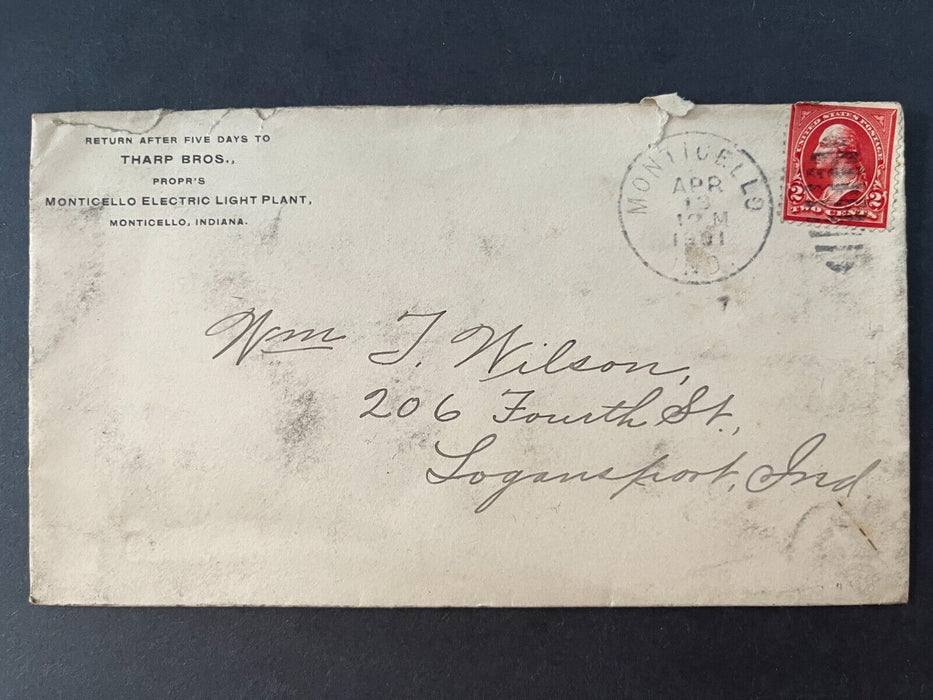 RETURN AFTER FIVE DAYS TO
THARP BROS.,
PROPR'S
MONTICELLO ELECTRIC LIGHT PLANT,
MONTICELLO, INDIANA.
MONTICELLO
APR
13
12 M
1901
IND.
UNITED STATES POSTAGE
2 2
TWO CENTS
Wm T. Wilson,
206 Fourth St.,
Logansport, Ind